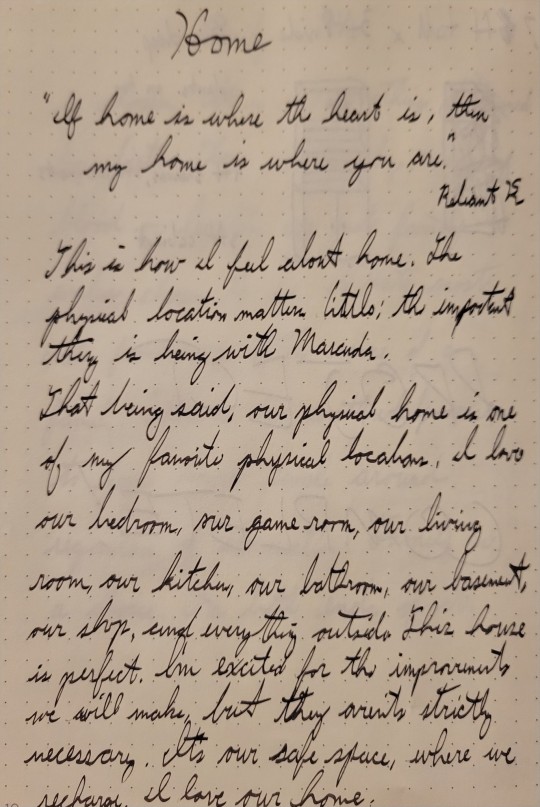 Home
"If home is where the heart is, then
my home is where you are."
Relient K
This is how I feel about home. The
physical location matters little; the important
thing is being with
That being said, our physical home is one
of my favorite physical locations. I love
our bedroom, our game room, our living
room, our kitchen, our bathroom, our basement,
our shop, and everything outside. This house
is perfect. I'm excited for the improvements
we will make, but they aren't strictly
necessary. It's our safe space, where we
recharge. I love our home.